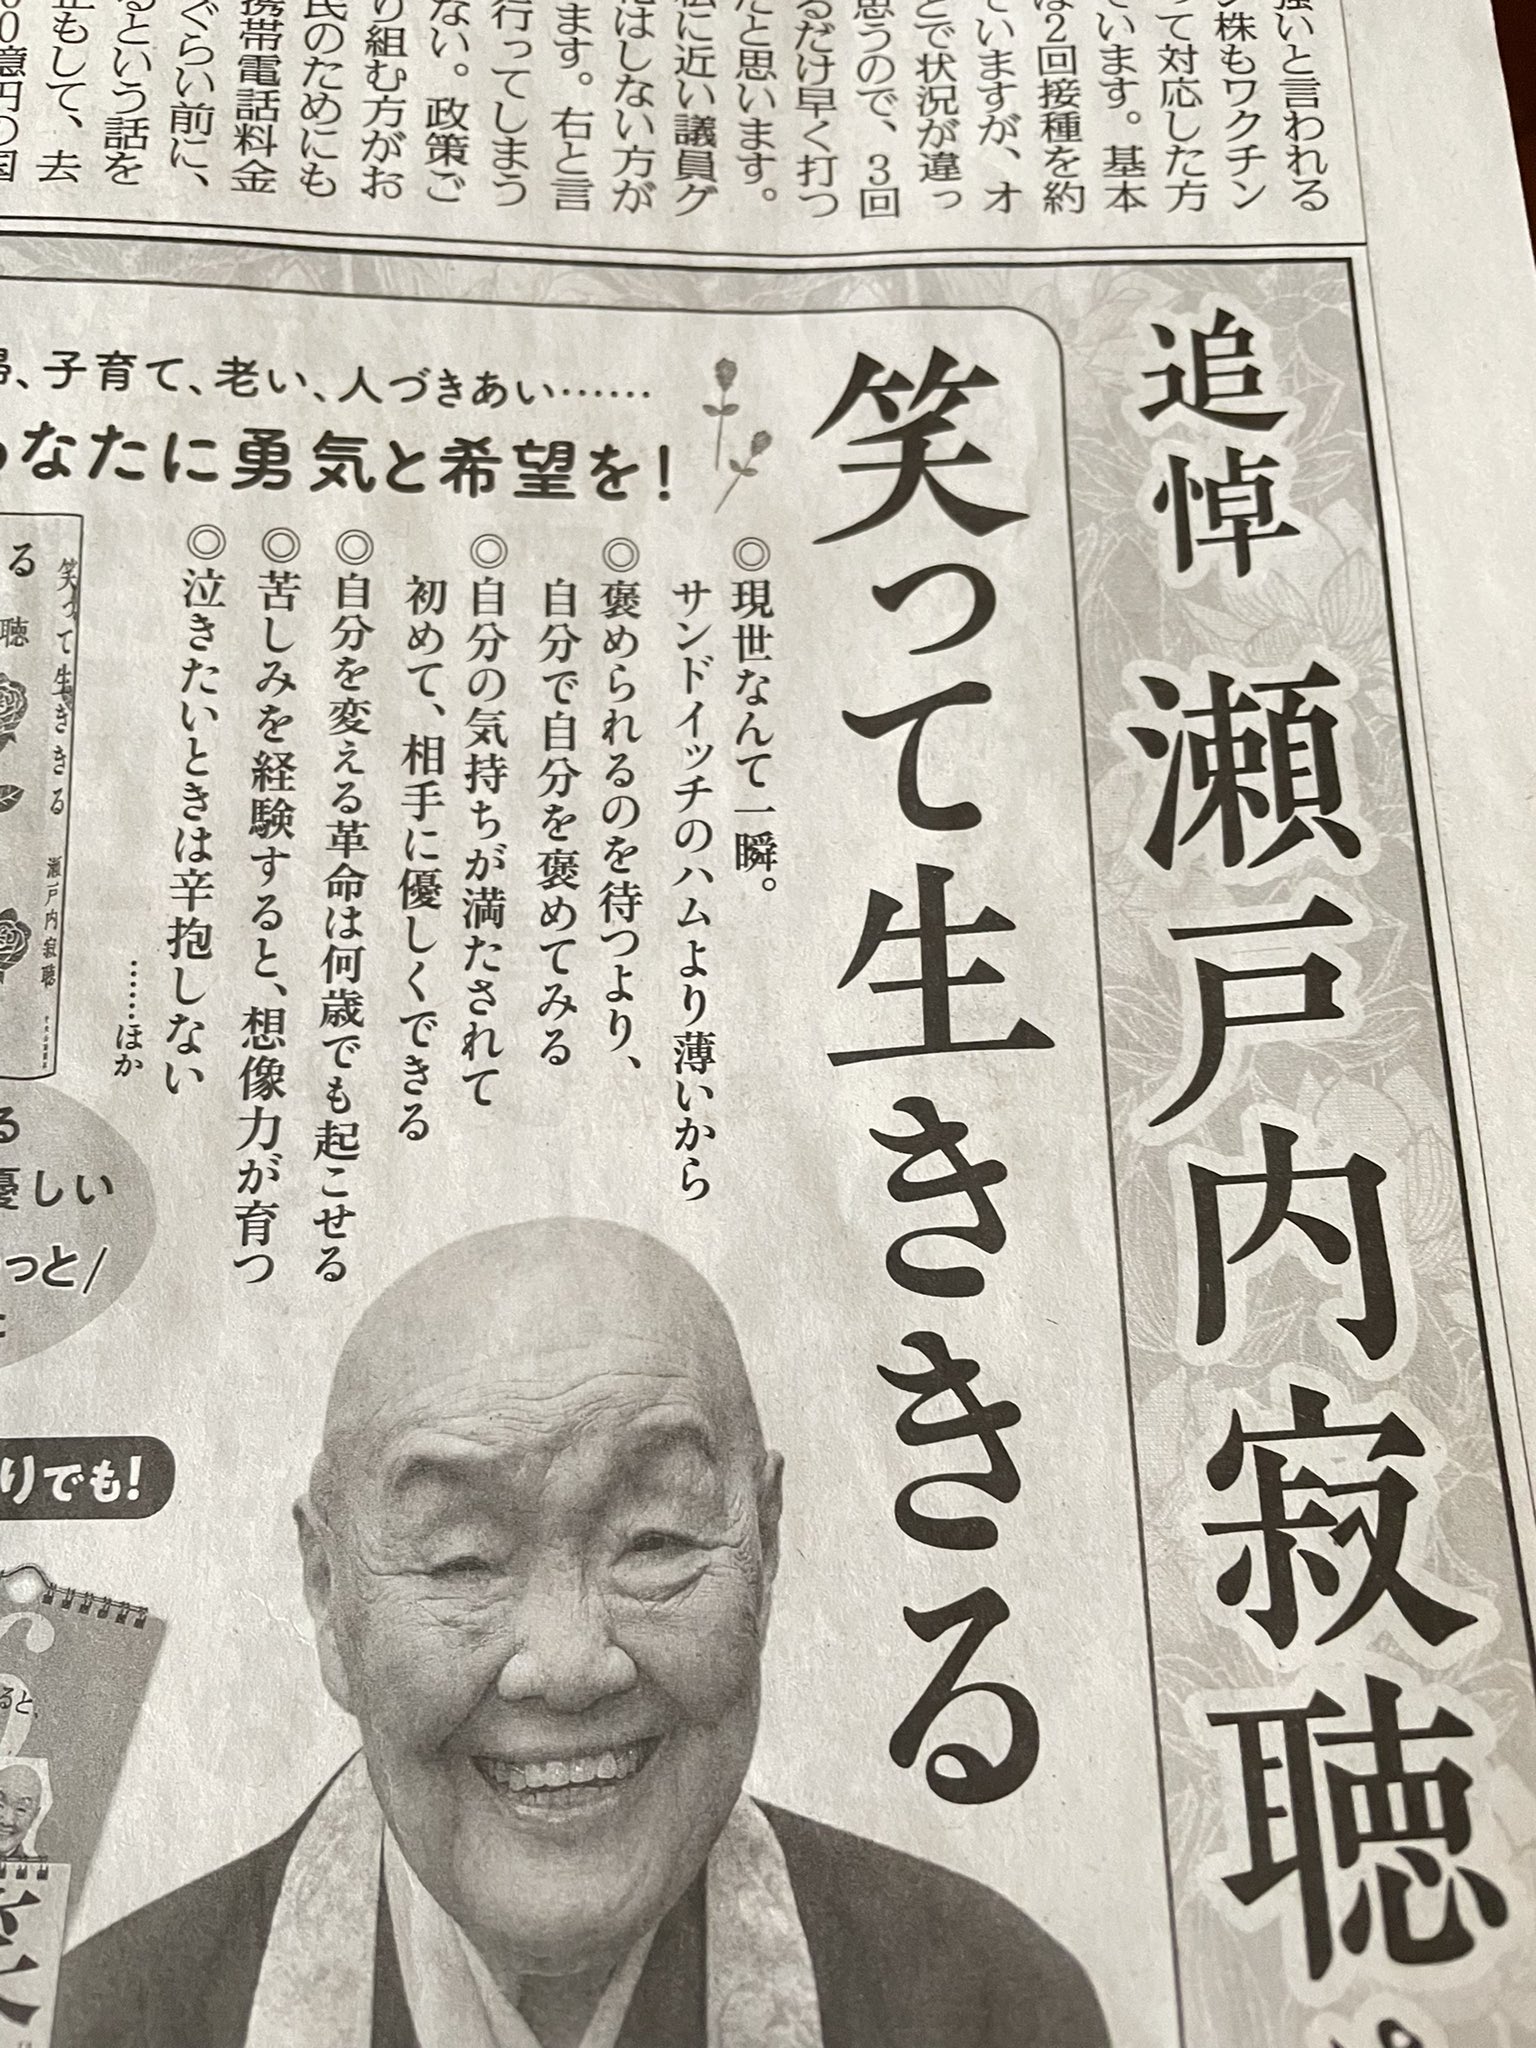 強いと言われる
ン株もワクチン
って対応した方
ています。基本
は2回接種を約
ていますが、オ
とで状況が違っ
思うので、3回
るだけ早く打つ
たと思います。
私に近い議員グ
にはしない方が
ます。右と言
行ってしまう
ない。政策ご
り組む方がお
民のためにも
携帯電話料金
ぐらい前に、
るという話を
正もして、去
0億円の国
追悼 瀬戸内寂聴
笑って生ききる
、子育て、老い、人づきあい……
あなたに勇気と希望を!
◎現世なんて一瞬。
サンドイッチのハムより薄いから
◎褒められるのを待つより、
自分で自分を褒めてみる
◎自分の気持ちが満たされて
初めて、相手に優しくできる
◎自分を変える革命は何歳でも起こせる
◎苦しみを経験すると、想像力が育つ
◎泣きたいときは辛抱しない
……ほか
笑って生ききる 瀬戸内寂聴
る
聴
る
優しい
っと/
りでも!
ると、
笑